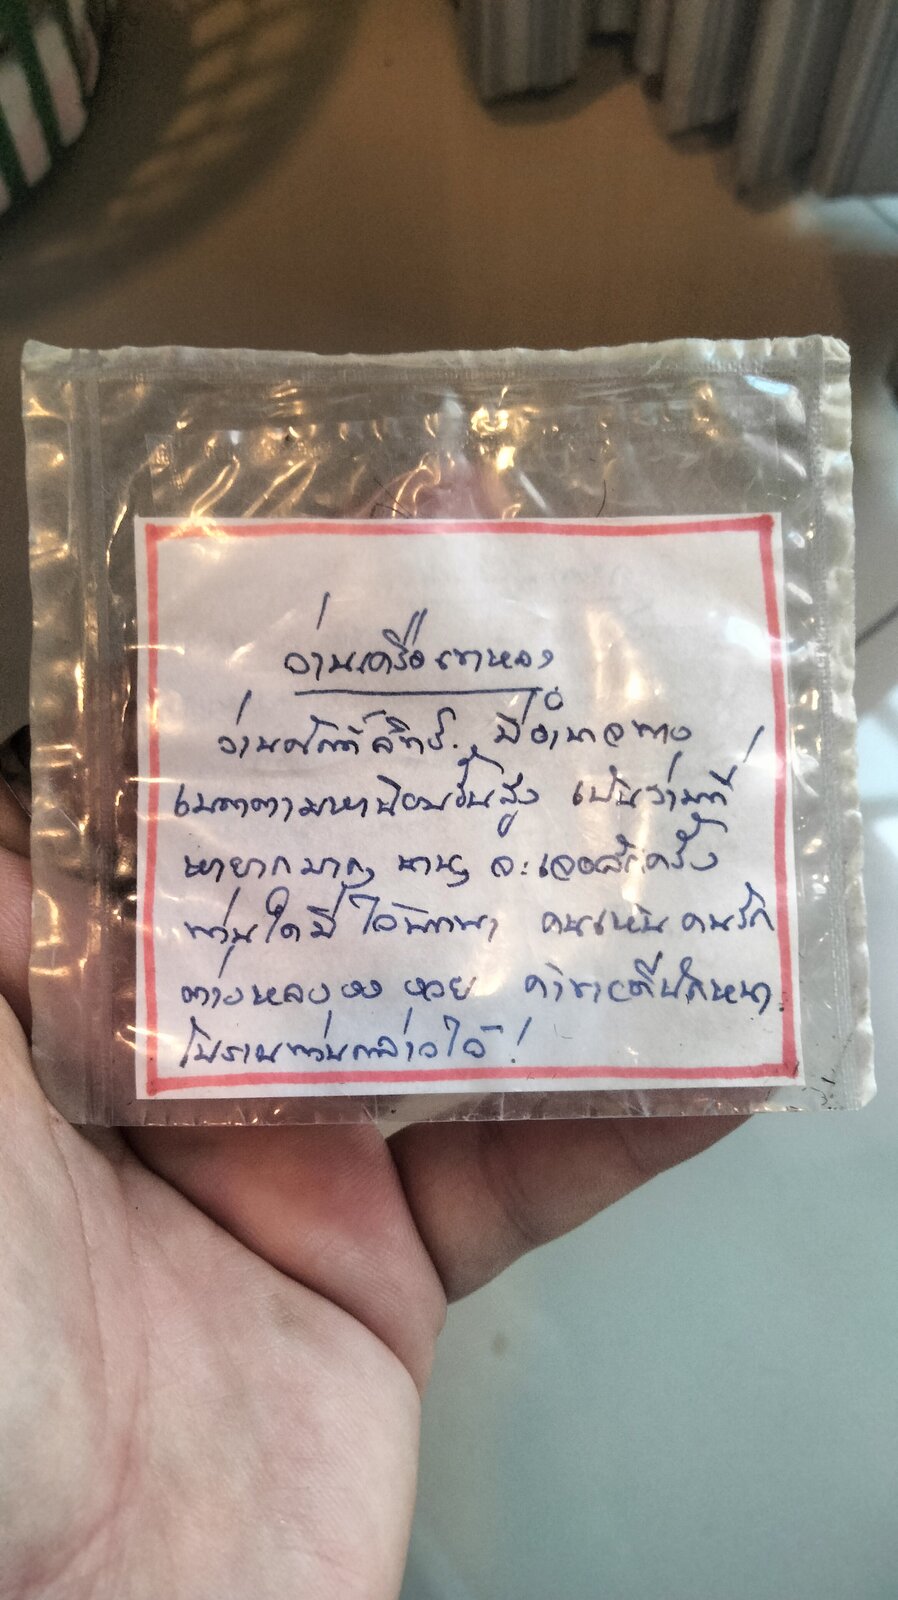 ว่านเครือเขาหลง
ว่านศักดิ์สิทธิ์. มีอำนาจทาง
เมตตามหานิยมชั้นสูง เป็นว่านที่
หายากมากๆ นานๆ จะเจอสักครั้ง
ท่านใดมีไว้พกพา คนเห็นคนรัก
ต่างหลงงงงวย ค้าขายดีนักหนา
โบราณท่านกล่าวไว้!